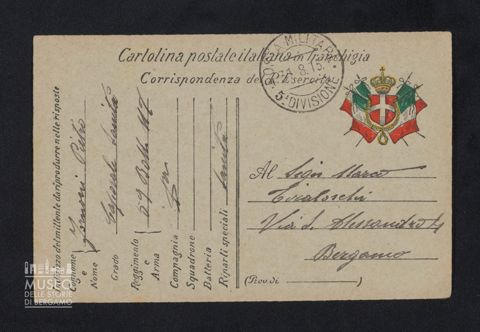 Cartolina postale italiana in franchigia
Corrispondenza del R. Esercito
POSTA MILITARE
8.15
5ª DIVISIONE
Indirizzo del mittente da riprodurre nelle risposte
Cognome e Nome Pietro
Grado Caporale Sanità
Reggimento e Arma 59 Batt.
Compagnia
Squadrone
Batteria
Riparti speciali Sanità
Al Sigr Marco
Tiraboschi
Via S. Alessandro 4
Bergamo
(Prov. di )
MUSEO
DELLE STORIE
DI BERGAMO